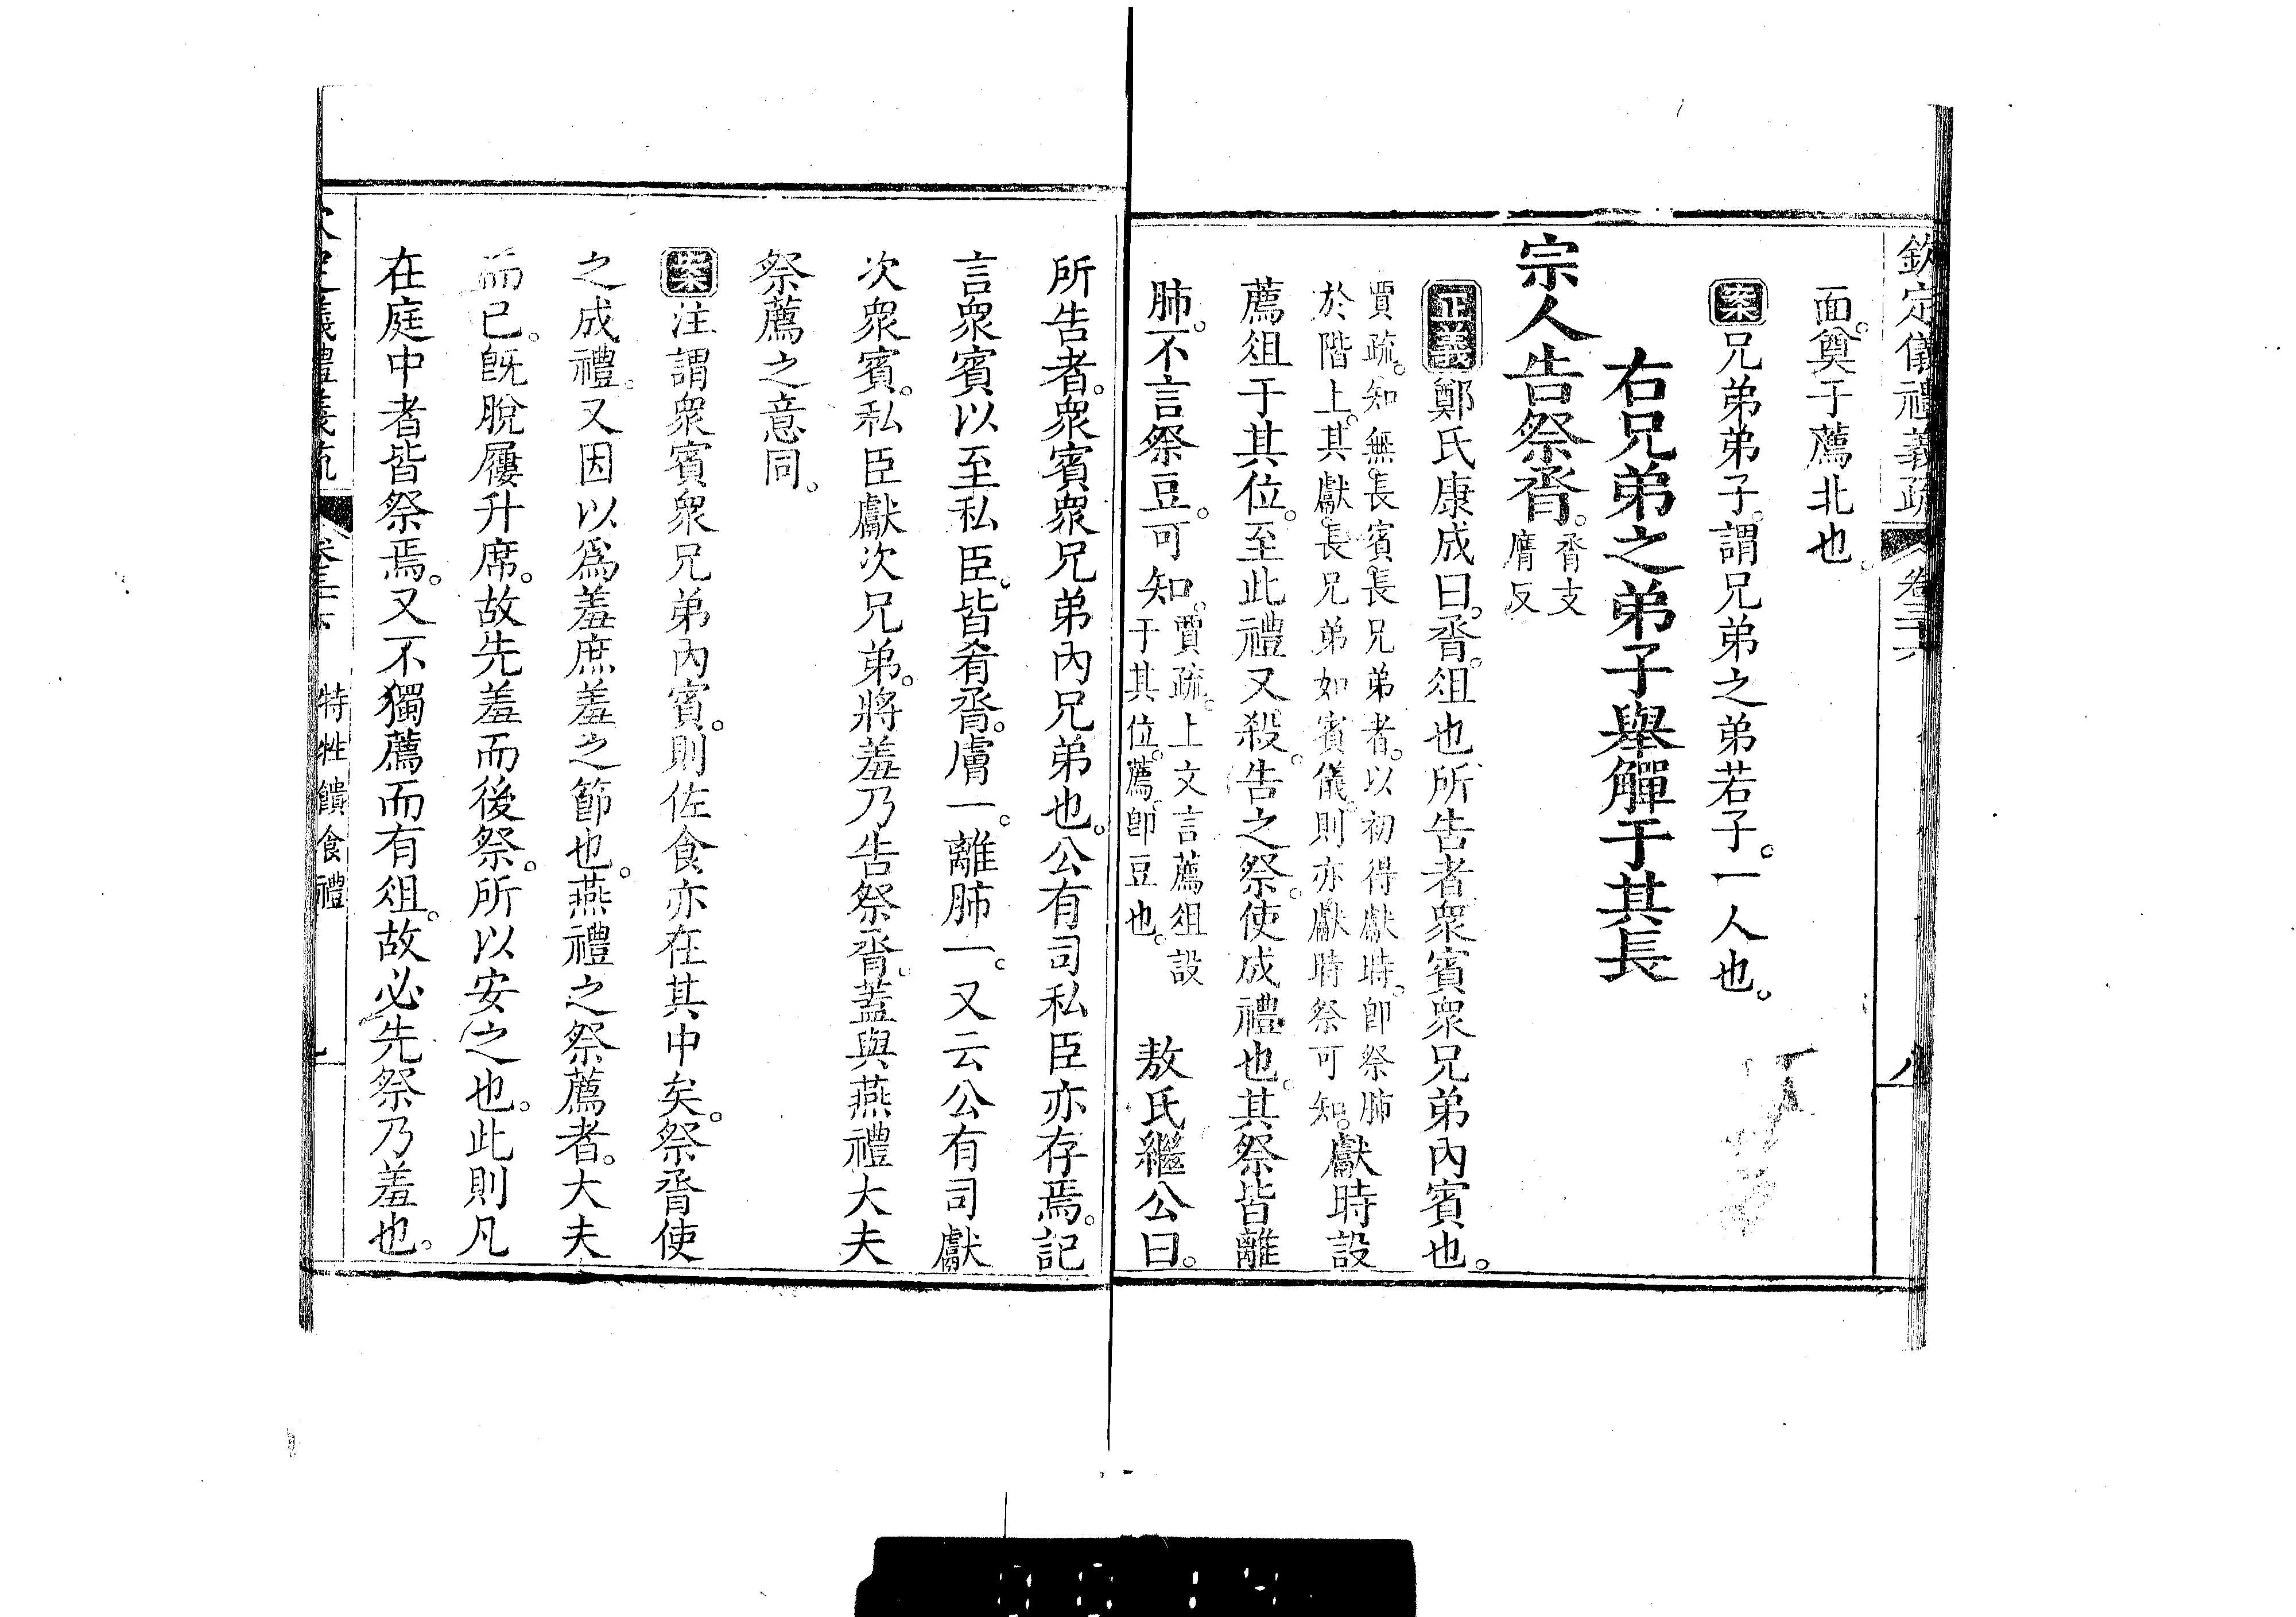 欽定儀禮義疏 卷三十六 八
面。奠于薦北也。
案兄弟弟子。謂兄弟之弟若子。一人也。
右兄弟之弟子舉觶于其長
宗人告祭脀。脀支膺反
正義鄭氏康成曰。脀。俎也。所告者衆賓衆兄弟內賓也。
賈疏。知無長賓。長兄弟者。以初得獻時。卽祭肺
於階上。其獻長兄弟如賓儀。則亦獻時祭可知。獻時設
薦俎于其位。至此禮又殺。告之祭。使成禮也。其祭皆離
肺。不言祭豆。可知。賈疏。上文言薦俎設于其位。薦。卽豆也。 敖氏繼公曰。
所告者。衆賓衆兄弟內兄弟也。公有司私臣亦存焉。記
言衆賓以至私臣。皆肴脀。膚一。離肺一。又云公有司獻
次衆賓。私臣獻次兄弟。將羞乃告祭脀。蓋與燕禮大夫
祭薦之意同。
案注謂衆賓衆兄弟內賓。則佐食亦在其中矣。祭脀使
之成禮。又因以爲羞庶羞之節也。燕禮之祭薦者。大夫
而已。旣脫屨升席。故先羞而後祭。所以安之也。此則凡
在庭中者皆祭焉。又不獨薦而有俎。故必先祭乃羞也。
定儀禮義疏 卷三十六 特牲饋食禮